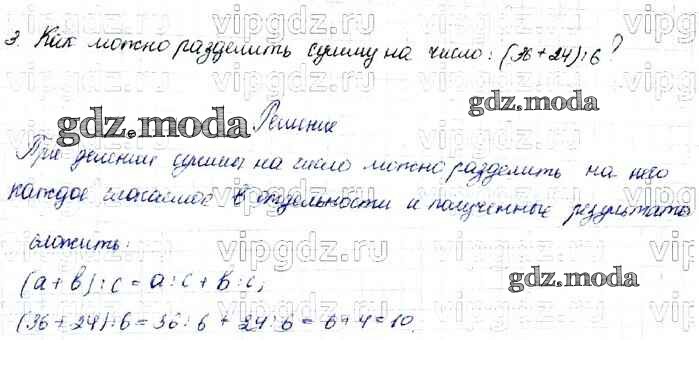 3. Как можно разделить сумму на число: (36+24):6?
Решение
При делении суммы на число можно разделить на него
каждое слагаемое в отдельности и полученные результаты
сложить:
(a+b):c=a:c+b:c,
(36+24):6=36:6+24:6=6+4=10.
vipgdz.ru
gdz.moda
gdz.moda
gdz.moda